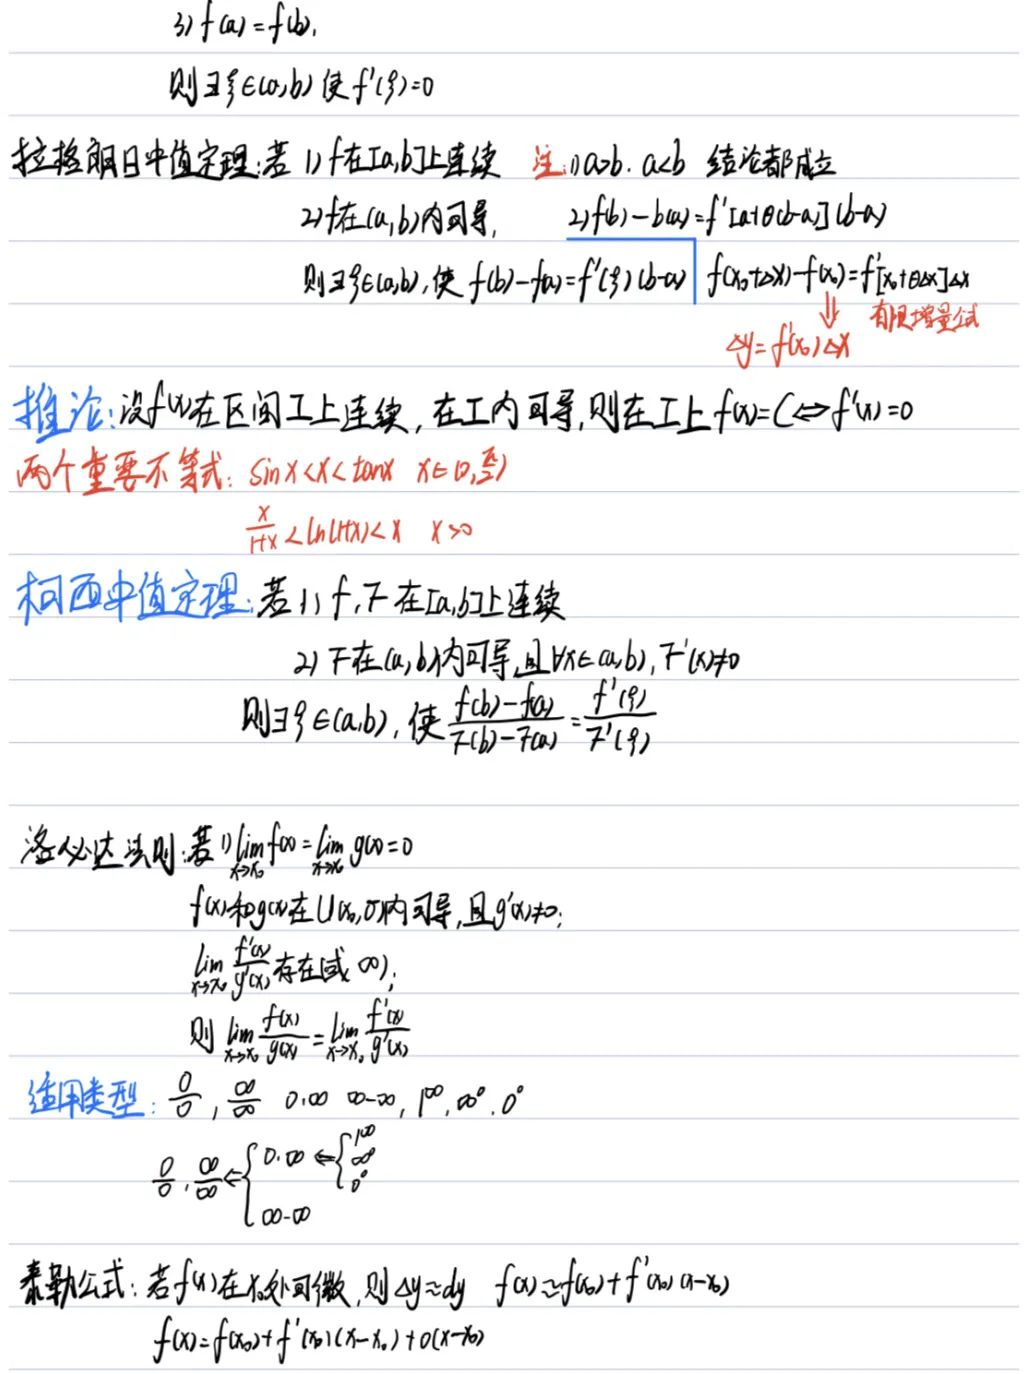 3) f(a)=f(b),
则∃ξ∈(a,b)使f'(ξ)=0
拉格朗日中值定理:若 1) f在[a,b]上连续 注:1)a>b. a<b 结论都成立
2)f在(a,b)内可导, 2)f(b)-b(a)=f'[a+θ(b-a)](b-a)
则∃ξ∈(a,b),使 f(b)-f(a)=f'(ξ)(b-a) f(x₀+Δx)-f(x₀)=f'[x₀+θΔx]Δx
⇓ 有限增量公式
Δy=f'(x₀)Δx
推论:设f(x)在区间I上连续,在I内可导,则在I上f(x)=C⇔f'(x)=0
两个重要不等式: sinx<x<tanx x∈(0,π/2)
x/(1+x)<ln(1+x)<x x>0
柯西中值定理:若1) f,F在[a,b]上连续
2) F在(a,b)内可导,且∀x∈(a,b),F'(x)≠0
则∃ξ∈(a,b),使 (f(b)-f(a))/(F(b)-F(a))=f'(ξ)/F'(ξ)
洛必达法则:若1) lim x→x₀ f(x)=lim x→x₀ g(x)=0
f(x)和g(x)在U(x₀,δ)内可导,且g'(x)≠0;
lim x→x₀ f'(x)/g'(x) 存在(或∞);
则 lim x→x₀ f(x)/g(x)=lim x→x₀ f'(x)/g'(x)
适用类型: 0/0, ∞/∞ 0·∞ ∞-∞, 1^∞, ∞⁰, 0⁰
0/0, ∞/∞ ⇐ { 0·∞ ⇐ { 1^∞ ∞⁰ 0⁰
∞-∞
泰勒公式:若f(x)在x₀处可微,则Δy≈dy f(x)≈f(x₀)+f'(x₀)(x-x₀)
f(x)=f(x₀)+f'(x₀)(x-x₀)+o(x-x₀)